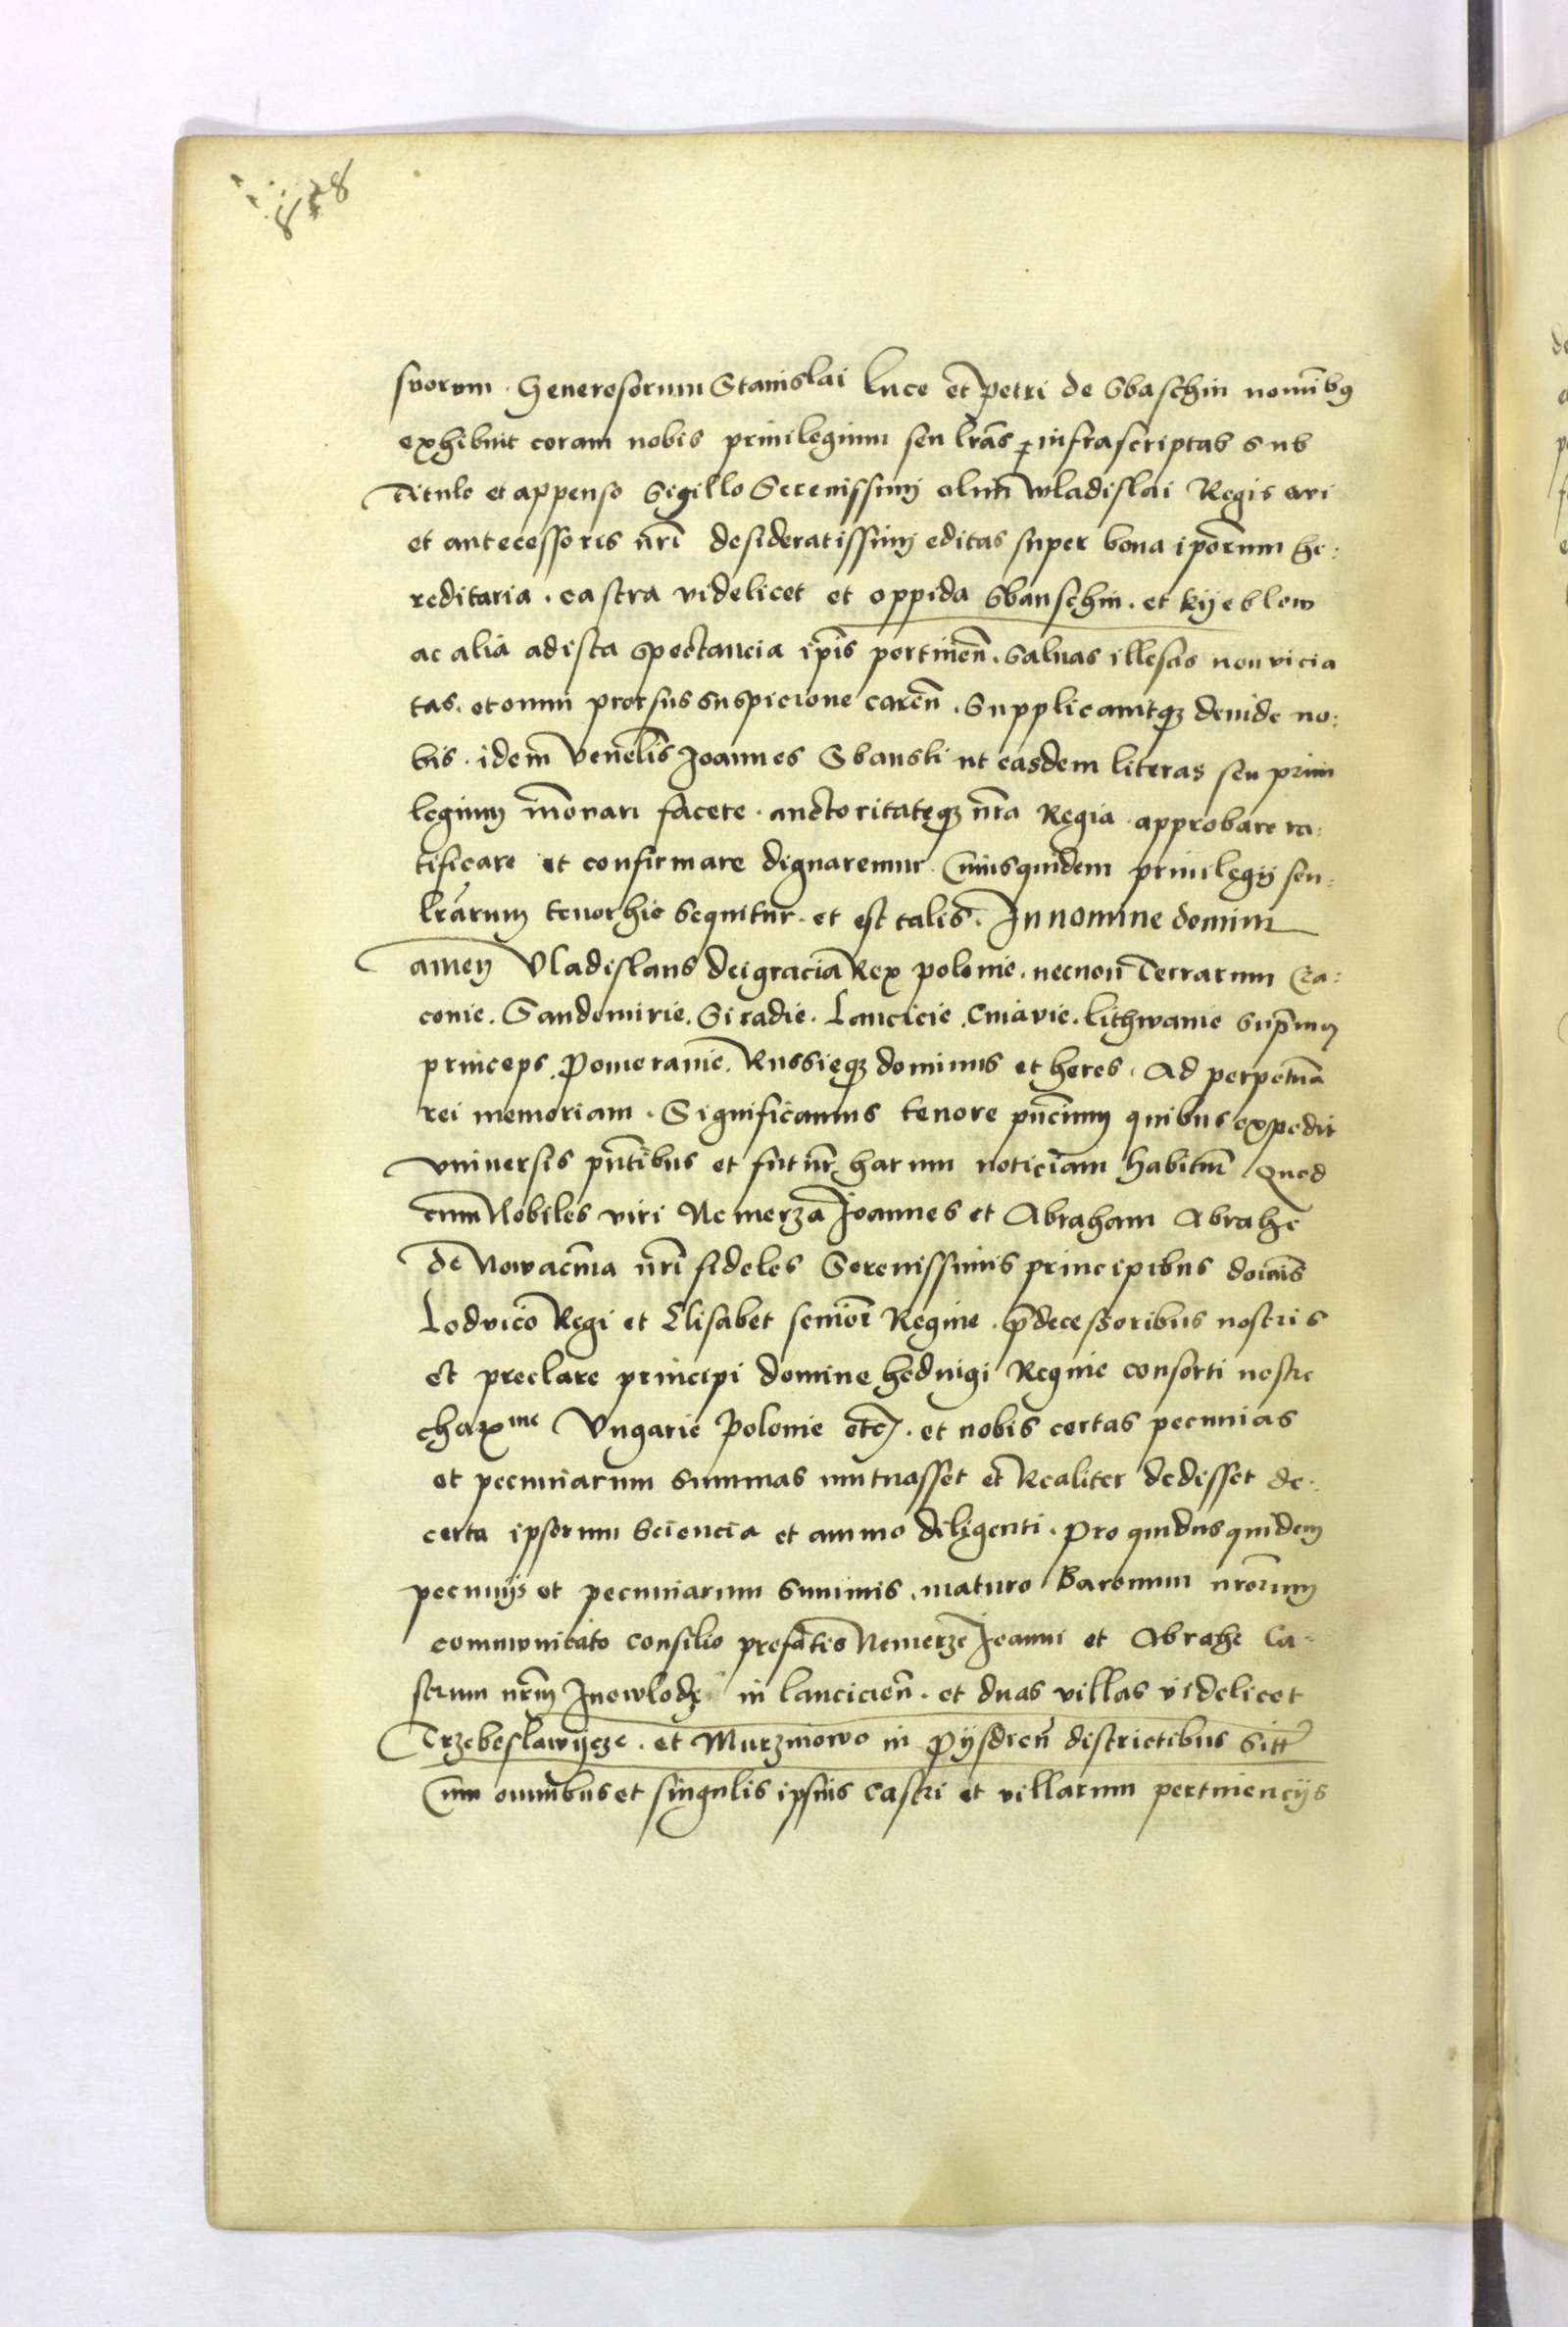 suorum . Generosorum Stanislai Luce et Petri de Sbaschin nom̄ibꝯ
exhibuit coram nobis priuilegium seu lr̄as infrascriptas sub
Titulo et appenso Sigillo Serenissimj olim̄ Wladislai Regis aui
et antecessoris nr̄i desideratissimj editas super bona ip̄orum he:
reditaria . castra videlicet et oppida Sbanschin . et Kÿeblow
ac alia ad ista spectancia ip̄is pertinen̄ . Saluas illesas non vicia
tas . et omni prorsus suspicione caren̄ . Supplicauitqꝫ deinde no:
bis . idem Venel̄is Joannes Sbanski ut easdem literas seu priui
legium in̄ouari facere . auctoritateqꝫ nr̄a Regia approbare ra:
tificare et confirmare dignaremur . Cuiusquidem priuilegij seu:
lr̄arum tenor hic sequitur . et est talis . In nomine domini
amen Vladislaus dei gracia Rex polonie . necnon Terrarum Cra:
couie . Sandomirie . Siradie . Lancicie . Cuiauie . Lithwanie Sup̄mus
princeps . Pomeranie . Russieqꝫ dominus et heres . Ad perpetuā
rei memoriam . Significamus tenore pn̄cium quibus expedit
vniuersis pn̄tibus et futur̄ harum noticiam habitur̄ Quod
cum Nobiles viri Nemerza Joannes et Abraham Abrahe
de Nowacm̄a nr̄i fideles Serenissimis principibus dom̄is
Lodvico Regi et Elisabet seniori Regine . p̄decessoribus nostris
et preclare principi domine heduigi Regine consorti nostre
charxᵐᵉ Vngarie Polonie etc . et nobis certas pecunias
et pecuniarum summas mutuasset et Realiter dedisset de .
certa ipsorum sciencia et animo diligenti . pro quidus quidem
pecunijs et pecuniarum summis . maturo Baronum nr̄orum
communicato consilio prefatis Nemerze Joanni et Abrahe Ca-
strum nr̄m Jnowlodz in lancicien̄ . et duas villas videlicet
Trzebeslawÿcze . et Murzinowo in Pÿsdren̄ districtibus sitt̄
Cum omnibus et singulis ipsius castri et villarum pertinencijs